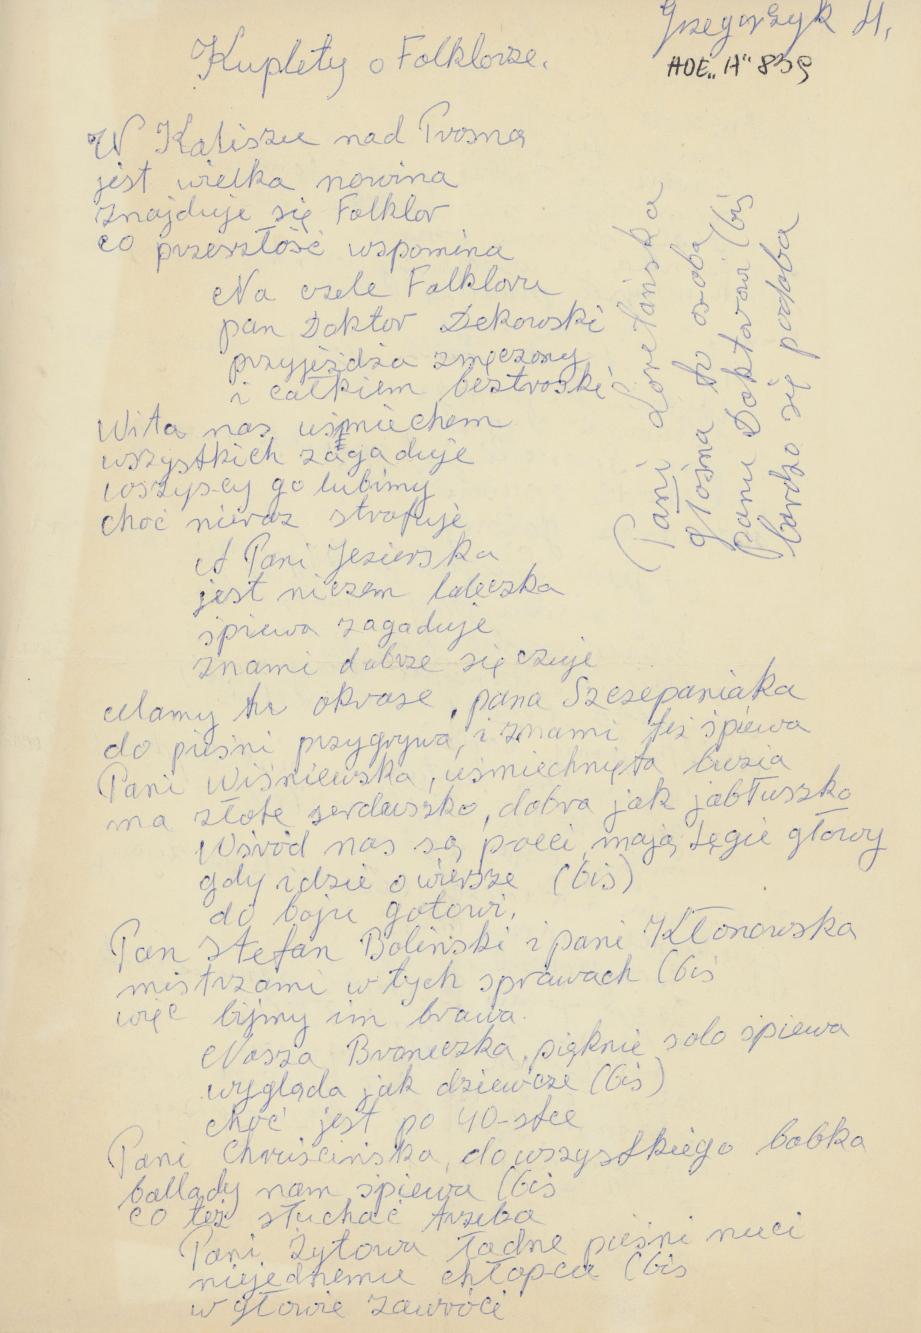 Grzegorczyk H.
ADE „A" 839
Kuplety o Folklorze.
W Kaliszu nad Prosną
jest wielka nowina
znajduje się Folklor
co przeszłość wspomina
Na czele Folkloru
pan Doktor Dekowski
przyjeżdża zmęczony
i całkiem beztroski
Wita nas uśmiechem
wszystkich zagaduje
wszyscy go lubimy
choć nieraz strofuje
A Pani Jezierska
jest niczem laleczka
śpiewa zagaduje
znami dobrze się czuje
Mamy tu okrasę, pana Szczepaniaka
do pieśni przygrywa, i znami też śpiewa
Pani Wiśniewska, uśmiechnięta buzia
ma złote serduszko, dobra jak jabłuszko
Wśród nas są poeci, mają tęgie głowy
gdy idzie o wiersze (bis)
do boju gotowi.
Pan Stefan Boliński i pani Kłonowska
mistrzami w tych sprawach (bis
więc bijmy im brawa.
Nasza Broneczka, pięknie solo śpiewa
wygląda jak dziewcze (bis)
choć jest po 40-stce
Pani Chruścińska, do wszystkiego babka
ballady nam śpiewa (bis
co też słuchać trzeba
Pani Żytowa ładne pieśni nuci
niejednemu chłopcu (bis
w głowie zawróci
Pani Loretańska
głośna to osoba
panu Doktorowi (bis
bardzo się podoba